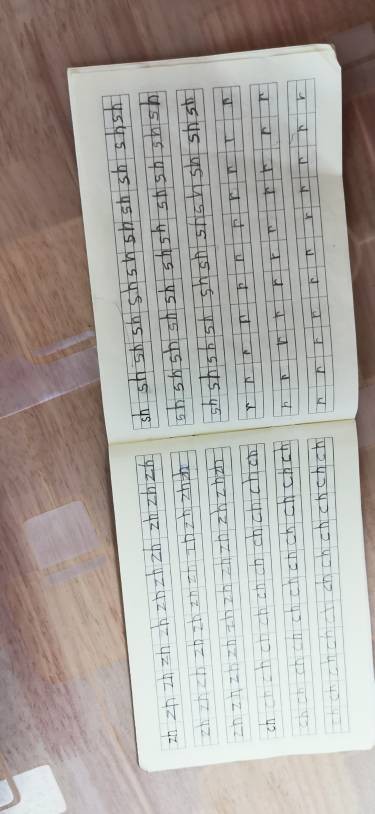 zh zh zh zh zh zh zh zh zh zh zh
zh zh zh zh zh zh zh zh zh zh zh
zh zh zh zh zh zh zh zh zh zh zh
ch ch ch ch ch ch ch ch ch ch ch
ch ch ch ch ch ch ch ch ch ch ch
ch ch ch ch ch ch ch ch ch ch ch
sh sh sh sh sh sh sh sh sh sh sh
sh sh sh sh sh sh sh sh sh sh sh
sh sh sh sh sh sh sh sh sh sh sh
r r r r r r r r r r r
r r r r r r r r r r r
r r r r r r r r r r r